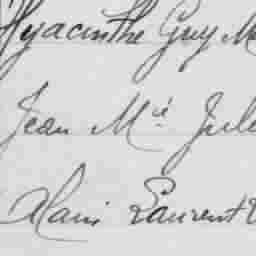 Hyacinthe Guy M
Jean M.ie Jule
Alain Laurent